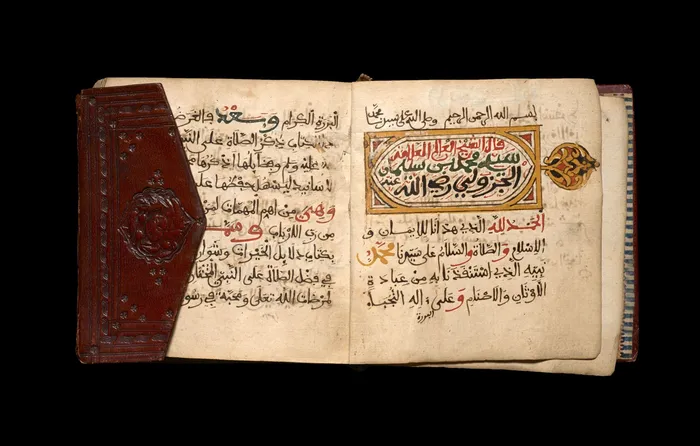 بسم الله الرحمن الرحيم وصلى الله على سيدنا محمد
قال الشيخ العالم العلامة
سيدي محمد بن سليمان
الجزولي رحمه الله
الحمد لله الذي هدانا للايمان و
الاسلام والصلاة والسلام على سيدنا محمد
نبيه الذي استنقذنا به من عبادة
الاوثان والاصنام وعلى ءاله النجباء
البررة
البررة الكرام وبعد فالغرض
الكتاب ذكر الصلاة على
عليه وسلم وفضائلها نذكرها
الاسانيد ليسهل حفظها على
وهي من اهم المهمات لمن
من رب الارباب
بكتاب دلائل الخيرات وشوار
في الصلاة على النبي المختار
لمرضات الله تعلى ومحبة في رسو